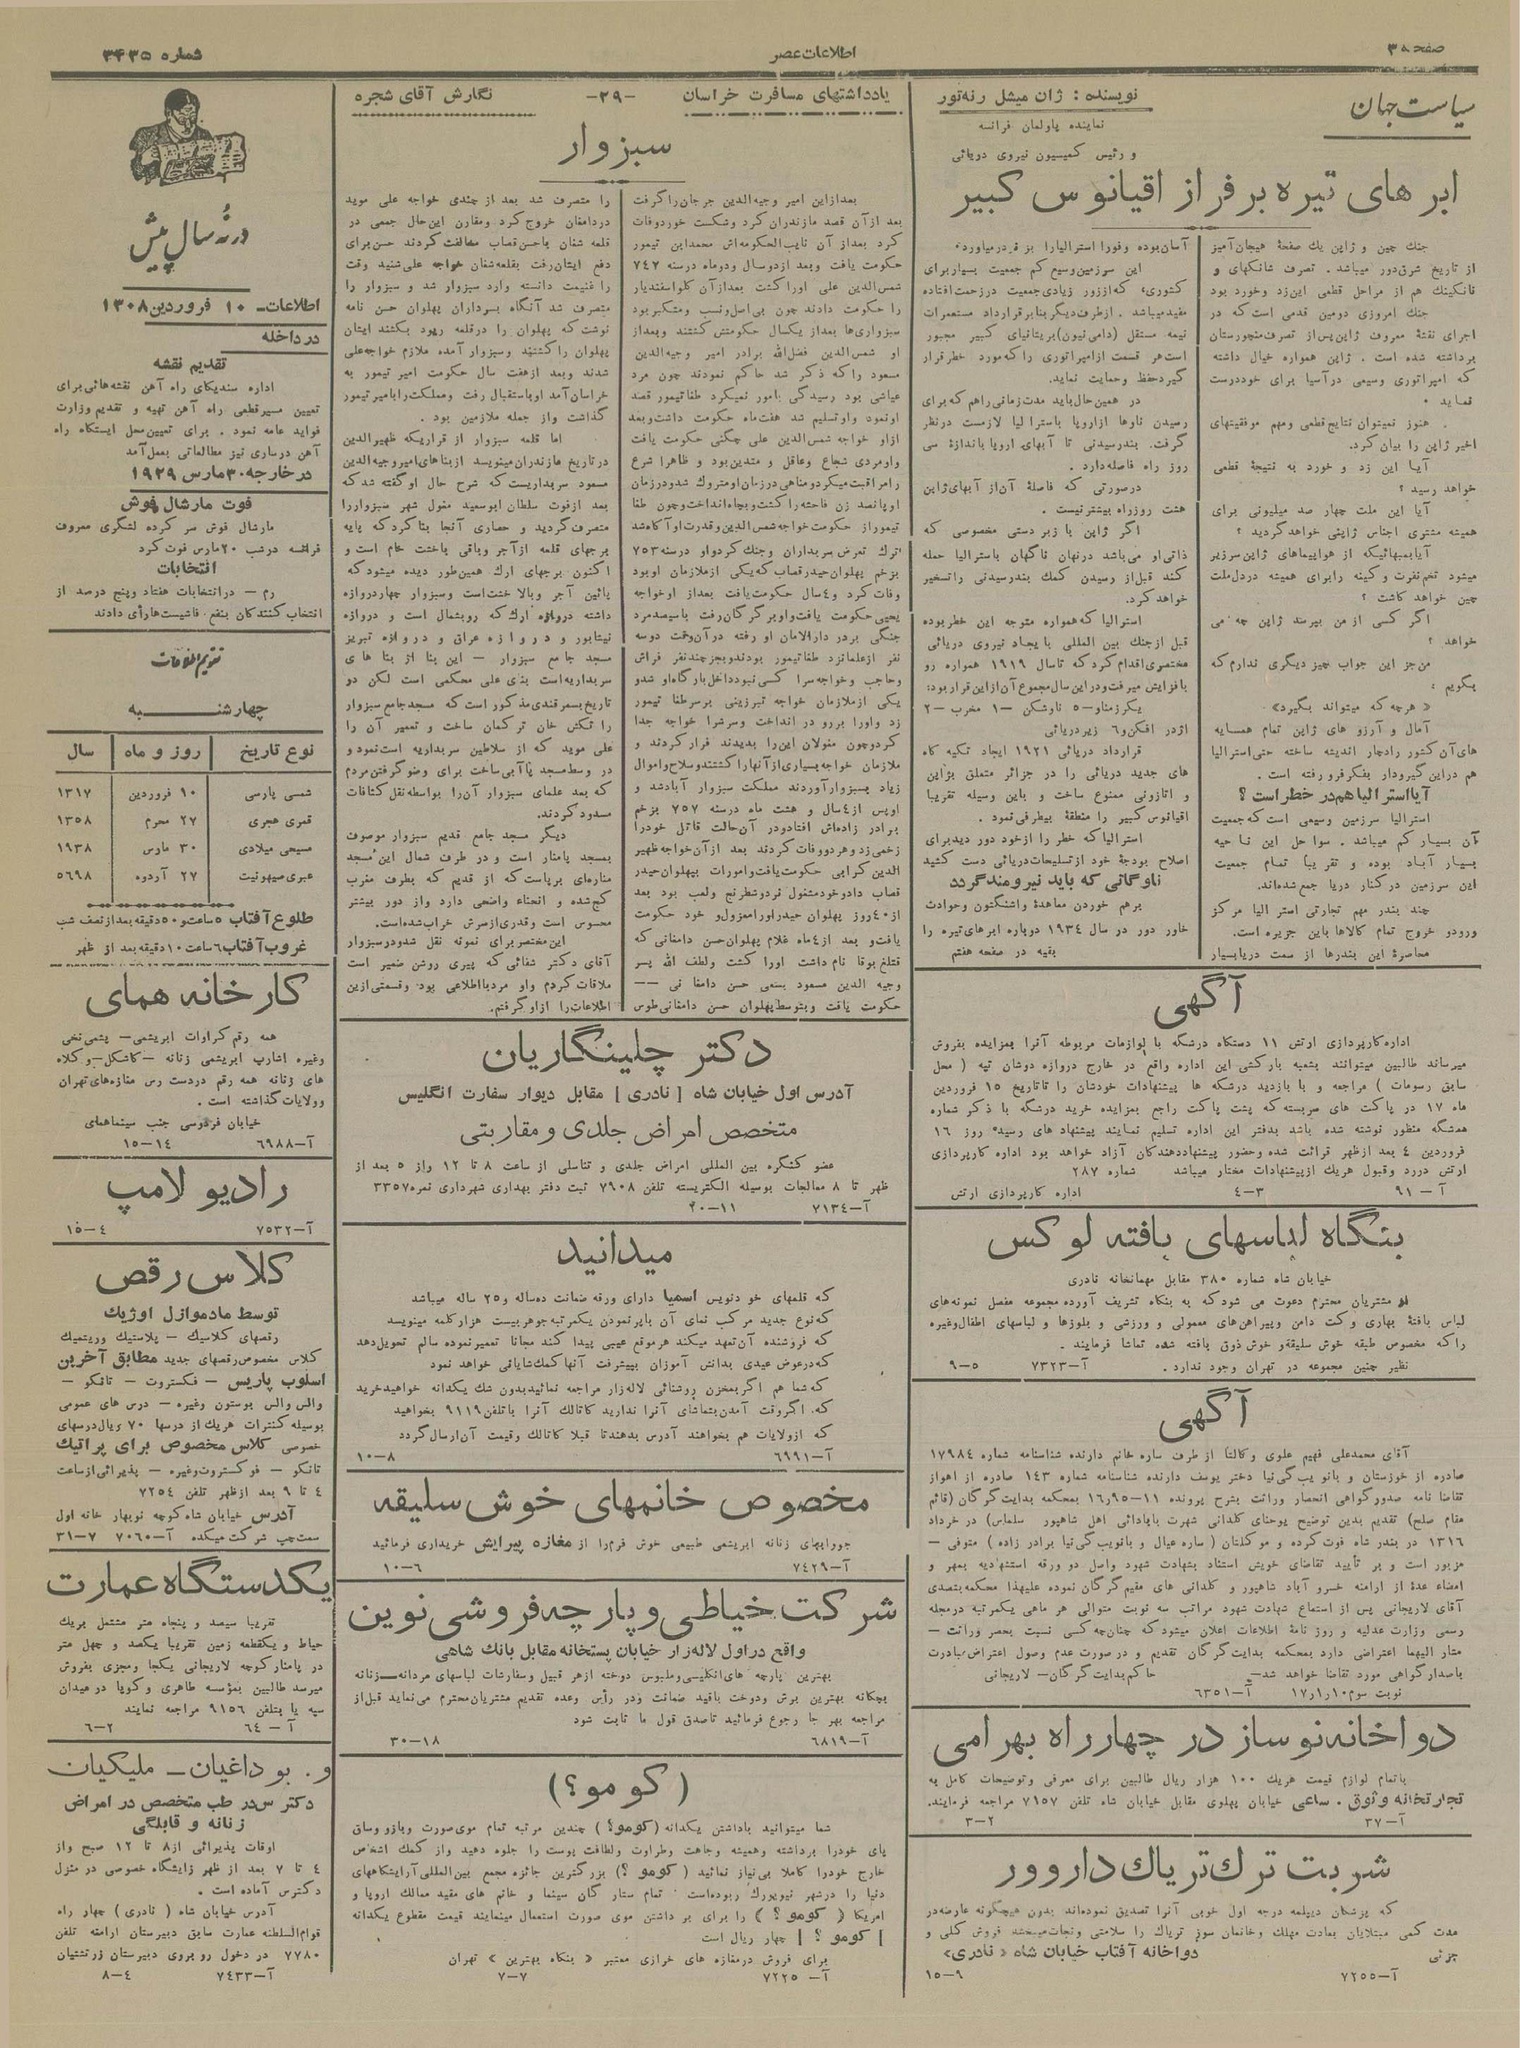 صفحه ۳
اطلاعات عصر
شماره ۳۴۳۵
سیاست جهان
نویسنده : ژان میشل رنه‌تور
نماینده پاولمان فرانسه
و رئیس کمیسیون نیروی دریائی
ابر های تیره بر فراز اقیانوس کبیر
جنك چین و ژاپن یك صفحهٔ هیجان آمیز
از تاریخ شرق دور میباشد . تصرف شانگهای و
نانکینك هم از مراحل قطعی این زد وخورد بود
جنك امروزی دومین قدمی است که در
اجرای نقشهٔ معروف ژاپن پس از تصرف منچورستان
برداشته شده است . ژاپن همواره خیال داشته
که امپراتوری وسیعی در آسیا برای خود درست
نماید .
هنوز نمیتوان نتایج قطعی ومهم موفقیتهای
اخیر ژاپن را بیان کرد.
آیا این زد و خورد به نتیجهٔ قطعی
خواهد رسید ؟
آیا این ملت چهار صد میلیونی برای
همیشه مشتری اجناس ژاپنی خواهد گردید ؟
آیا بمبهائیکه از هواپیماهای ژاپن سرزیر
میشود تخم نفرت و کینه را برای همیشه در دل ملت
چین خواهد کاشت ؟
اگر کسی از من بپرسد ژاپن چه می
خواهد ؟
من جز این جواب چیز دیگری ندارم که
بگویم :
« هرچه که میتواند بگیرد»
آمال و آرزو های ژاپن تمام همسایه
های آن کشور رادچار اندیشه ساخته حتی استرالیا
هم در این گیرودار بفکر فرو رفته است .
آیا استرالیا هم در خطر است ؟
استرالیا سرزمین وسیعی است که جمعیت
آن بسیار کم میباشد . سواحل این ناحیه
بسیار آباد بوده و تقریبا تمام جمعیت
این سرزمین در کنار دریا جمع شده‌اند.
چند بندر مهم تجارتی استرالیا مرکز
ورود و خروج تمام کالاها باین جزیره است.
محاصرهٔ این بندرها از سمت دریا بسیار
آسان بوده و فورا استرالیارا بزانو در میاورد.
این سرزمین وسیع کم جمعیت بسیار برای
کشوری، که از زور زیادی جمعیت در زحمت افتاده
مفید میباشد . از طرف دیگر بنابر قرارداد مستعمرات
نیمه مستقل (دامی نیون) بریتانیای کبیر مجبور
است هر قسمت از امپراتوری را که مورد خطر قرار
گیرد حفظ وحمایت نماید.
در همین حال باید مدت زمانی راهم که برای
رسیدن ناوها از اروپا باسترالیا لازمست در نظر
گرفت. بندر سیدنی تا آبهای اروپا باندازهٔ سی
روز راه فاصله دارد .
در صورتی که فاصلهٔ آن از آبهای ژاپن
هشت روز راه بیشتر نیست .
اگر ژاپن با زبر دستی مخصوصی که
ذاتی او می‌باشد در نهان ناگهان باسترالیا حمله
کند قبل از رسیدن کمك بندر سیدنی را تسخیر
خواهد کرد.
استرالیا که همواره متوجه این خطر بوده
قبل از جنك بین المللی با یجاد نیروی دریائی
مختصری اقدام کرد که تا سال ۱۹۱۹ همواره رو
بافزایش میرفت و در این سال مجموع آن از این قرار بود:
یك رزمناو-۵ ناوشکن -۱ مخرب -۲
اژدر افکن و ۶ زیر دریائی
قرارداد دریائی ۱۹۲۱ ایجاد تکیه گاه
های جدید دریائی را در جزائر متعلق بژاپن
و اتازونی ممنوع ساخت و باین وسیله تقریبا
اقیانوس کبیر را منطقهٔ بیطرفی نمود .
استرالیا که خطر را از خود دور دید برای
اصلاح بودجهٔ خود از تسلیحات دریائی دست کشید
ناوگانی که باید نیرومند گردد
برهم خوردن معاهدهٔ واشنگتون وحوادث
خاور دور در سال ۱۹۳۴ دوباره ابرهای تیره را
بقیه در صفحه هفتم
یادداشتهای مسافرت خراسان
-۲۹-
نگارش آقای شجره
سبزوار
بعد از این امیر وجیه الدین جرجان را گرفت
بعد از آن قصد مازندران کرد وشکست خورد وفات
کرد بعد از آن نایب الحکومه‌اش محمد این تیمور
حکومت یافت وبعد از دو سال و دو ماه در سنه ۷۴۷
شمس الدین علی او را کشت بعد از آن کلو اسفندیار
را حکومت دادند چون بی اصل و نسب ومتکبر بود
سبزواری‌ها بعد از یکسال حکومتش کشتند و بعد از
او شمس الدین فضل الله برادر امیر وجیه الدین
مسعود را که ذکر شد حاکم نمودند چون مرد
عیاشی بود رسیدگی بامور نمیکرد طغا تیمور قصد
او نمود واو تسلیم شد هفت ماه حکومت داشت و بعد
از او خواجه شمس الدین علی چگنی حکومت یافت
واو مردی شجاع وعاقل و متدین بود و ظاهرا شرع
را مراقبت میکرد و مناهی در زمان او متروك شد و در زمان
او پانصد زن فاحشه را کشت و بچاه انداخت و چون طغا
تیمور از حکومت خواجه شمس الدین و قدرت او آگاه شد
ترك تعرض سربداران وجنك کرد واو در سنه ۷۵۳
بزخم پهلوان حیدر قصاب که یکی از ملازمان او بود
وفات کرد و ۴ سال حکومت یافت بعد از او خواجه
یحیی حکومت یافت واو بر گرگان رفت با سیصد مرد
جنگی بر در دار الامان او رفته در آن وقت دو سه
نفر از علما نزد طغا تیمور بودند و بجز چند نفر فراش
وحاجب وخواجه سرا کسی نبود داخل بارگاه او شد و
یکی از ملازمان خواجه تبرزینی بر سر طغا تیمور
زد و او را بر رو در انداخت وسر شرا خواجه جدا
کرد و چون مغولان این را بدیدند فرار کردند و
ملازمان خواجه بسیاری از آنها را کشتند و سلاح و اموال
زیاد بسبزوار آوردند مملکت سبزوار آباد شد و
او پس از ۴ سال و هشت ماه در سنه ۷۵۷ بزخم
برادر زاده‌اش افتاد و در آن حالت قاتل خود را
زخمی زد و هر دو وفات کردند بعد از آن خواجه ظهیر
الدین کرابی حکومت یافت و امورات بپهلوان حیدر
قصاب داد و خود مشغول نرد و شطرنج و لعب بود بعد
از ۴۰ روز پهلوان حیدر او را معزول و خود حکومت
یافت و بعد از ۴ ماه غلام پهلوان حسن دامغانی که
قتلغ بوقا نام داشت او را کشت و لطف الله پسر
وجیه الدین مسعود بسعی حسن دامغانی --
حکومت یافت و بتوسط پهلوان حسن دامغانی طوس
را متصرف شد بعد از چندی خواجه علی موید
در دامغان خروج کرد ومقارن این حال جمعی در
قلعه شغان با حسن قصاب مخالفت کردند حسن برای
دفع ایشان رفت بقلعه شغان خواجه علی شنید وقت
را غنیمت دانسته وارد سبزوار شد و سبزوار را
متصرف شد آنگاه بسرداران پهلوان حسن نامه
نوشت که پهلوان را در قلعه ربود بکشند ایشان
پهلوان را کشتند و سبزوار آمده ملازم خواجه علی
شدند و بعد از هفت سال حکومت امیر تیمور به
خراسان آمد او باستقبال رفت و مملکت را بامیر تیمور
گذاشت و از جمله ملازمین بود .
اما قلعه سبزوار از قراریکه ظهیر الدین
در تاریخ مازندران مینویسد از بناهای امیر وجیه الدین
مسعود سربداریست که شرح حال او گفته شد که
بعد از فوت سلطان ابو سعید مغول شهر سبزوار را
متصرف گردید و حصاری آنجا بنا کرد که پایه
برجهای قلعه از آجر و باقی باخشت خام است و
اکنون برجهای ارك همین طور دیده میشود که
پائین آجر و بالا خشت است و سبزوار چهار دروازه
داشته دروازه ارك که رو بشمال است و دروازه
نیشابور و دروازه عراق و دروازه تبریز
مسجد جامع سبزوار - این بنا از بنا های
سربداریه است بنای علی محکمی است لکن دو
تاریخ بسمرقندی مذکور است که مسجد جامع سبزوار
را تکش خان ترکمان ساخت و تعمیر آن را
علی موید که از سلاطین سربداریه است نمود و
در وسط مسجد پا آبی ساخت برای وضو گرفتن مردم
که بعد علمای سبزوار آن را بواسطه نقل کثافات
مسدود کردند.
دیگر مسجد جامع قدیم سبزوار موصوف
بمسجد پامنار است و در طرف شمال این مسجد
مناره‌ای برپاست که از قدیم که بطرف مغرب
کج شده و انحناء واضحی دارد و از دور بیشتر
محسوس است و قدری از سرش خراب شده است.
این مختصر برای نمونه نقل شد و در سبزوار
آقای دکتر شفائی که پیری روشن ضمیر است
ملاقات کردم واو مرد با اطلاعی بود و قسمتی از این
اطلاعات را از او گرفتم.
در نه سال پیش
اطلاعات- ۱۰ فروردین ۱۳۰۸
در داخله
تقدیم نقشه
اداره سندیکای راه آهن نقشه هائی برای
تعیین مسیر قطعی راه آهن تهیه و تقدیم وزارت
فواید عامه نمود . برای تعیین محل ایستگاه راه
آهن در ساری نیز مطالعاتی بعمل آمد
در خارجه ۳۰ مارس ۱۹۲۹
فوت مارشال فوش
مارشال فوش سر کرده لشگری معروف
فرانسه در شب ۲۰ مارس فوت کرد
انتخابات
رم - در انتخابات هفتاد و پنج درصد از
انتخاب کنندکان بنفع فاشیست ها رأی دادند
تقویم اطلاعات
چهارشنبه
نوع تاریخ | روز و ماه | سال
شمسی پارسی ۱۰ فروردین ۱۳۱۷
قمری هجری ۲۷ محرم ۱۳۵۸
مسیحی میلادی ۳۰ مارس ۱۹۳۸
عبری صیهونیت ۲۷ آردوه ۵۶۹۸
طلوع آفتاب ۵ ساعت و ۵۰ دقیقه بعد از نصف شب
غروب آفتاب ۶ ساعت ۱۰ دقیقه بعد از ظهر
آگهی
اداره کارپردازی ارتش ۱۱ دستگاه درشگه با لوازمات مربوطه آنرا بمزایده بفروش
میرساند طالبین میتوانند بشعبه بارکشی این اداره واقع در خارج دروازه دوشان تپه ( محل
سابق رسومات ) مراجعه و با بازدید درشگه ها پیشنهادات خودشان را تا تاریخ ۱۵ فروردین
ماه ۱۷ در پاکت های سربسته که پشت پاکت راجع بمزایده خرید درشگه با ذکر شماره
همشگه منظور نوشته شده باشد بدفتر این اداره تسلیم نمایند پیشنهاد های رسیده روز ۱۶
فروردین ۴ بعد از ظهر قرائت شده وحضور پیشنهاد دهندکان آزاد خواهد بود اداره کارپردازی
ارتش در رد وقبول هریك از پیشنهادات مختار میباشد شماره ۲۸۷
آ - ۹۱ ۳-۴ اداره کارپردازی ارتش
بنگاه لباسهای بافته لوکس
خیابان شاه شماره ۳۸۰ مقابل مهمانخانه نادری
از مشتریان محترم دعوت می شود که به بنگاه تشریف آورده مجموعه مفصل نمونه‌های
لباس بافتهٔ بهاری و کت دامن وپیراهن‌های معمولی و ورزشی و بلوزها و لباسهای اطفال و غیره
را که مخصوص طبقه خوش سلیقه و خوش ذوق بافته شده تماشا فرمایند .
نظیر چنین مجموعه در تهران وجود ندارد . آ-۷۳۲۳ ۵-۹
آگهی
آقای محمدعلی فهیم علوی وکالتا از طرف ساره خانم دارنده شناسنامه شماره ۱۷۹۸۴
صادره از خوزستان و بانو یب گی نیا دختر یوسف دارنده شناسنامه شماره ۱۴۳ صادره از اهواز
تقاضا نامه صدور گواهی انحصار وراثت بشرح پرونده ۱۱-۱۶٫۹۵ بمحکمه بدایت گرگان (قائم
مقام صلح) تقدیم بدین توضیح یوحنای کلدانی شهرت باباداتی اهل شاهپور سلماس) در خرداد
۱۳۱۶ در بندر شاه فوت کرده و موکلتان ( ساره عیال و بانویب گی نیا برادر زاده ) متوفی -
مزبور است و بر تأیید تقاضای خویش استناد بشهادت شهود واصل دو ورقه استشهادیه بمهر و
امضاء عدهٔ از ارامنه خسرو آباد شاهپور و کلدانی های مقیم گرگان نموده علیهذا محکمه بتصدی
آقای لاریجانی پس از استماع شهادت شهود مراتب سه نوبت متوالی هر ماهی یکمرتبه در مجله
رسمی وزارت عدلیه و روز نامهٔ اطلاعات اعلان میشود که چنانچه کسی نسبت بحصر وراثت -
مشار الیهما اعتراضی دارد بمحکمه بدایت گرگان تقدیم و در صورت عدم وصول اعتراض مبادرت
باصدار گواهی مورد تقاضا خواهد شد- حاکم بدایت گرگان- لاریجانی
نوبت سوم ۱۷٫۱٫۱۰ آ-۶۳۵۱
دواخانه نو ساز در چهار راه بهرامی
باتمام لوازم قیمت هریك ۱۰۰ هزار ریال طالبین برای معرفی وتوضیحات کامل به
تجارتخانه وثوق . ساعی خیابان پهلوی مقابل خیابان شاه تلفن ۷۱۵۷ مراجعه فرمایند.
آ-۳۷ ۲-۳
شربت ترك تریاك داروور
که پزشکان دیپلمه درجه اول خوبی آنرا تصدیق نموده‌اند بدون هیچگونه عارضه در
مدت کمی مبتلایان بعادت مهلك وخانمان سوز تریاك را سلامتی و نجات میبخشد فروش کلی و
جزئی دواخانه آفتاب خیابان شاه « نادری»
آ-۷۲۵۵ ۹-۱۵
دکتر چلینگاریان
آدرس اول خیابان شاه [ نادری ] مقابل دیوار سفارت انگلیس
متخصص امراض جلدی و مقاربتی
عضو کنگره بین المللی امراض جلدی و تناسلی از ساعت ۸ تا ۱۲ واز ۵ بعد از
ظهر تا ۸ معالجات بوسیله الکتریسته تلفن ۷۹۰۸ ثبت دفتر بهداری شهرداری نمره ۳۳۵۷
آ-۷۱۳۴ ۱۱-۲۰
میدانید
که قلمهای خود نویس اسمیا دارای ورقه ضمانت ده ساله و ۲۵ ساله میباشد
که نوع جدید مرکب نمای آن باپر نمودن یکمرتبه جوهر بیست هزار کلمه مینویسد
که فروشنده آن تعهد میکند هر موقع عیبی پیدا کند مجانا تعمیر نموده سالم تحویل دهد
که در عوض عیدی بدانش آموزان بپیشرفت آنها کمك شایانی خواهد نمود
که شما هم اگر بمخزن روشنائی لاله زار مراجعه نمائید بدون شك یکدانه خواهید خرید
که اگر وقت آمدن بتماشای آنرا ندارید کاتالك آنرا با تلفن ۹۱۱۹ بخواهید
که از ولایات هم بخواهند آدرس بدهند تا قبلا کاتالك وقیمت آن ارسال گردد
آ-۶۹۹۱ ۸-۱۰
مخصوص خانمهای خوش سلیقه
جورابهای زنانه ابریشمی طبیعی خوش فرم را از مغازه پیرایش خریداری فرمائید
آ-۷۴۲۹ ۶-۱۰
شرکت خیاطی و پارچه فروشی نوین
واقع در اول لاله زار خیابان پستخانه مقابل بانك شاهی
بهترین پارچه های انگلیسی و ملبوس دوخته از هر قبیل و سفارشات لباسهای مردانه-زنانه
بچگانه بهترین برش ودوخت باقید ضمانت ودر رأس وعده تقدیم مشتریان محترم می نماید قبل از
مراجعه بهر جا رجوع فرمائید تا صدق قول ما ثابت شود
آ-۶۸۱۹ ۱۸-۳۰
( کو مو؟ )
شما میتوانید باداشتن یکدانه (کومو؟) چندین مرتبه تمام موی صورت وبازو وساق
پای خودرا برداشته وهمیشه وجاهت وطراوت ولطافت پوست را جلوه دهید واز کمك اشخاص
خارج خودرا کاملا بی نیاز نمائید ( کومو ؟) بزرگترین جائزه مجمع بین المللی آرایشگاههای
دنیا را در شهر نیویورك ربوده است تمام ستار گان سینما و خانم های مقید ممالك اروپا و
امریکا ( کومو ؟ ) را برای بر داشتن موی صورت استعمال مینمایند قیمت مقطوع یکدانه
[ کومو ؟ ] چهار ریال است
برای فروش در مغازه های خرازی معتبر « بنگاه بهترین » تهران
آ-۷۲۲۵ ۷-۷
کارخانه همای
همه رقم کراوات ابریشمی- پشمی نخی
وغیره اشارپ ابریشمی زنانه -کاشکل-وکلاه
های زنانه همه رقم در دست رس مغازه‌های تهران
وولایات گذاشته است .
خیابان فردوسی جنب سینما همای
آ-۶۹۸۸ ۱۴-۱۵
رادیو لامپ
آ-۷۵۳۲ ۴-۱۵
کلاس رقص
توسط مادموازل اوژیك
رقصهای کلاسیك - پلاستیك وریتمیك
کلاس مخصوص رقصهای جدید مطابق آخرین
اسلوب پاریس - فکستروت - تانگو -
والس والس بوستون وغیره - درس های عمومی
بوسیله کنترات هریك از درسها ۷۰ ریال درسهای
خصوصی کلاس مخصوص برای پراتیك
تانگو - فوکستروت وغیره - پذیرائی از ساعت
۴ تا ۹ بعد از ظهر تلفن ۷۲۵۴
آدرس خیابان شاه کوچه نوبهار خانه اول
سمت چپ شرکت میکده آ-۷۰۶۰ ۷-۳۱
یکدستگاه عمارت
تقریبا سیصد و پنجاه متر مشتمل بریك
حیاط و یکقطعه زمین تقریبا یکصد و چهل متر
در پامنار کوچه لاریجانی یکجا و مجزی بفروش
میرسد طالبین بمؤسسه طاهری و کوپا در میدان
سپه یا بتلفن ۹۱۵۶ مراجعه نمایند
آ - ۶۴ ۲-۶
و . بو داغیان - ملیکیان
دکتر س در طب متخصص در امراض
زنانه و قابلگی
اوقات پذیرائی از ۸ تا ۱۲ صبح واز
۴ تا ۷ بعد از ظهر زایشگاه خصوصی در منزل
دکترس آماده است .
آدرس خیابان شاه ( نادری ) چهار راه
قوام السلطنه عمارت سابق دبیرستان ارامنه تلفن
۷۷۸۰ در دخول رو بروی دبیرستان زرتشتیان
آ-۷۴۳۳ ۴-۸